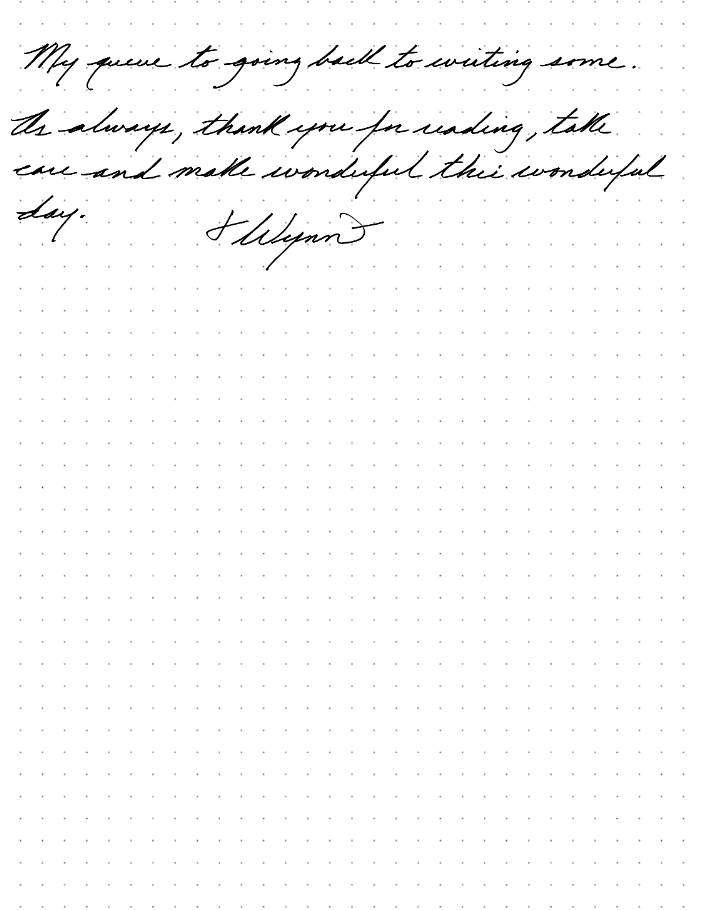 My queue to going back to writing some.
As always, thank you for reading, take
care and make wonderful this wonderful
day.
Wynn